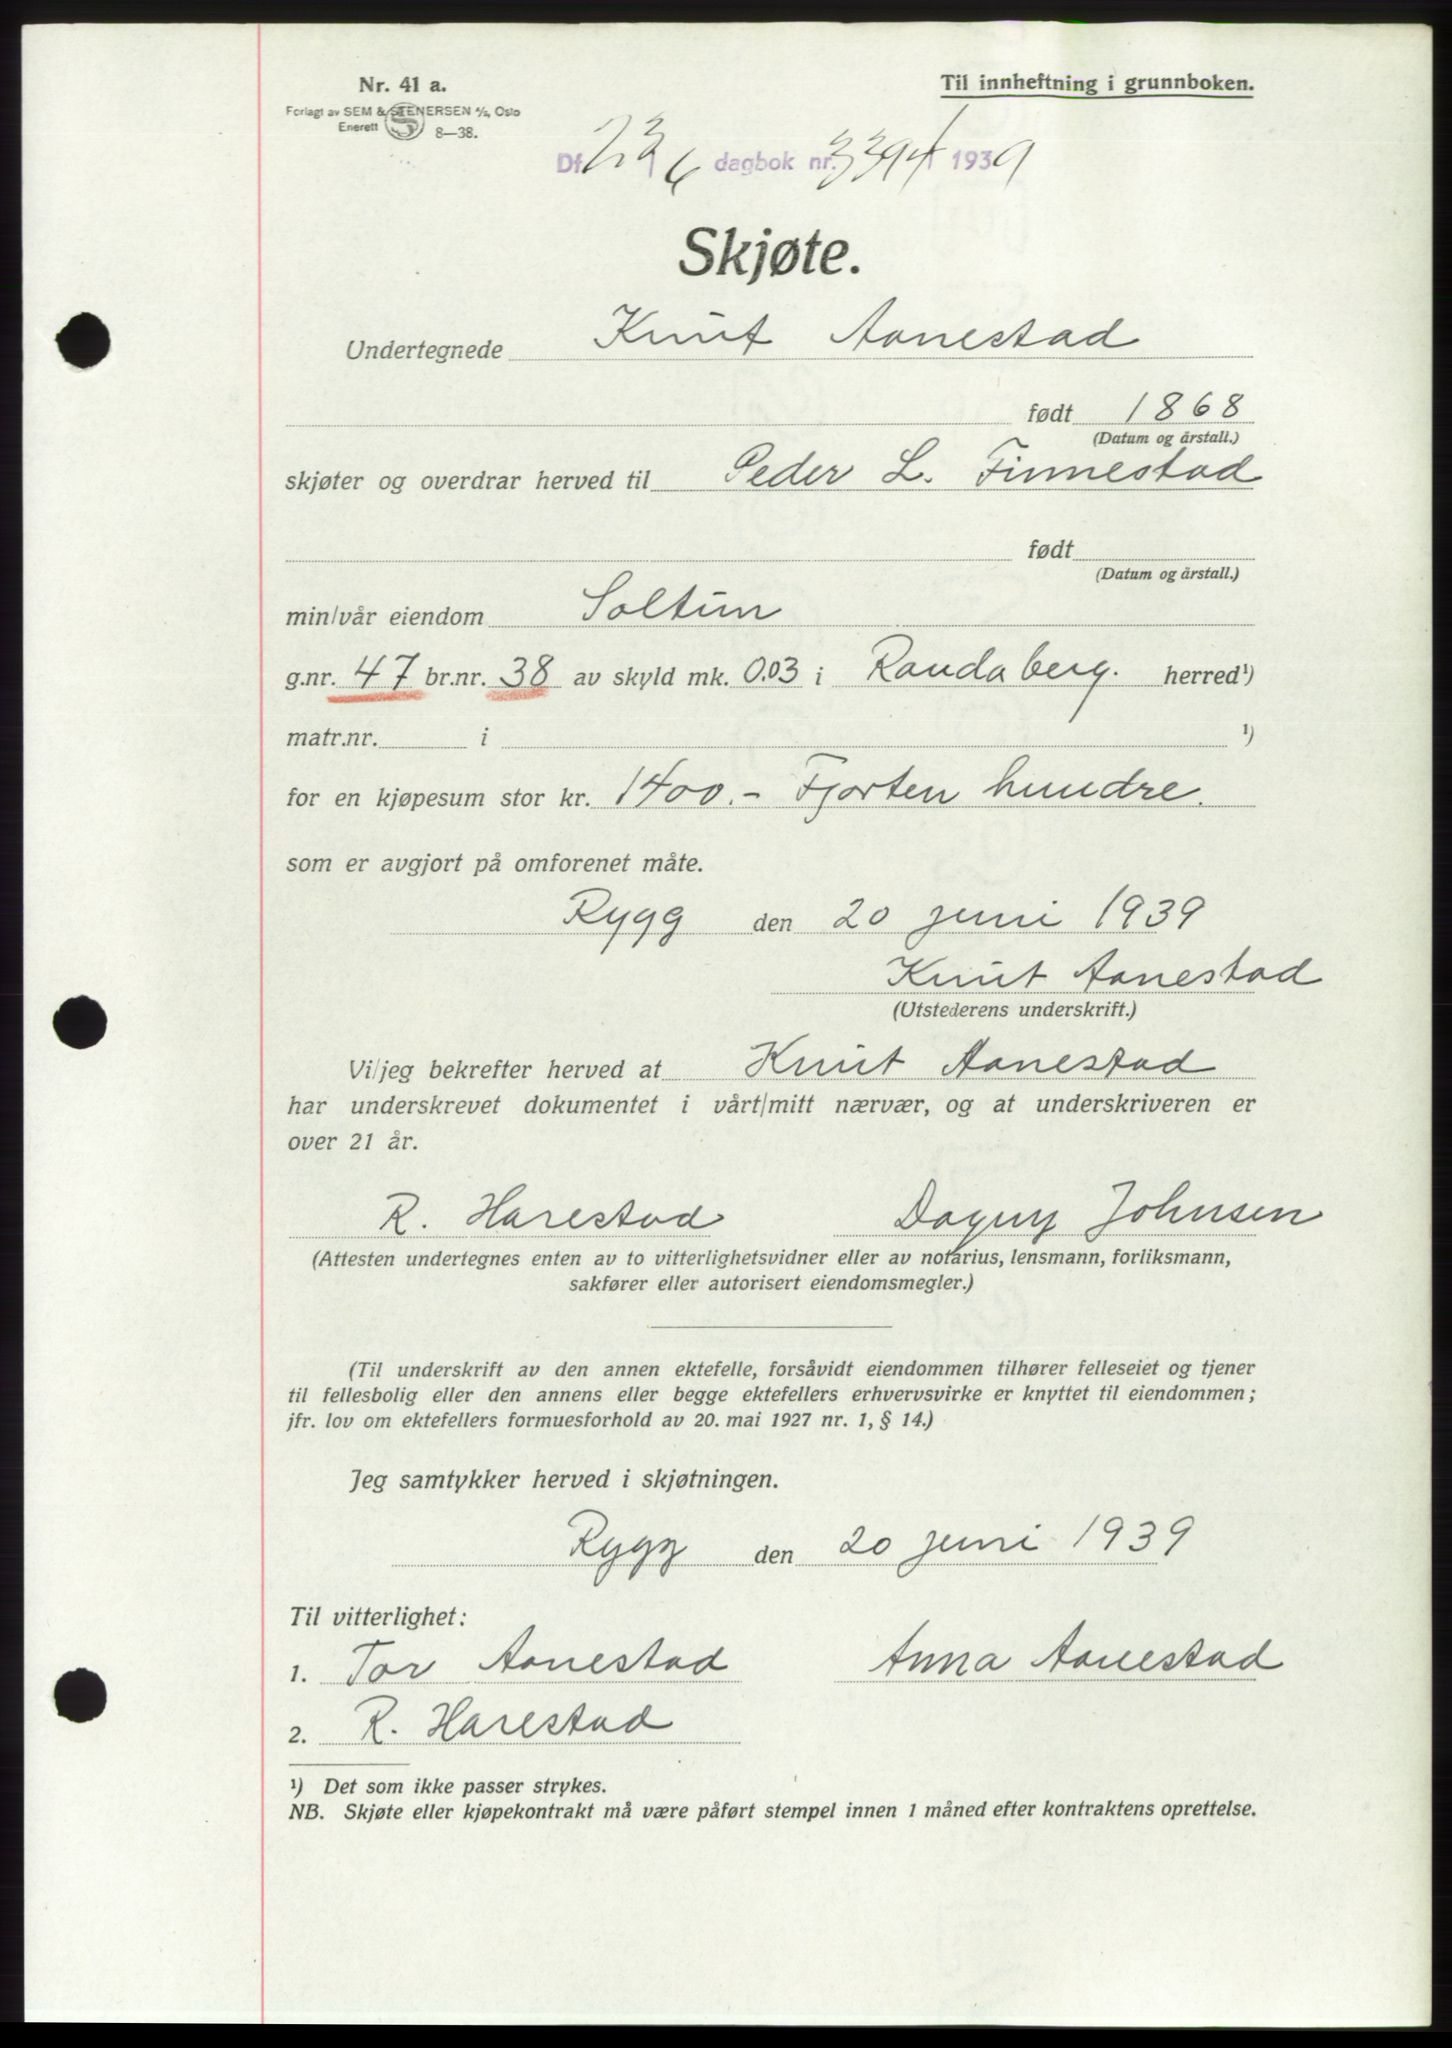 Nr. 41 a.
Forlagt av SEM & STENERSEN A/S, Oslo
Enerett 8—38.
Til innheftning i grunnboken.
Df 23/6 dagbok nr. 3394 1939
Skjøte.
Undertegnede Knut Aanestad
født 1868
(Datum og årstall.)
skjøter og overdrar herved til Peder L. Finnestad
født
(Datum og årstall.)
min/vår eiendom Soltun
g.nr. 47 br.nr. 38 av skyld mk. 0.03 i Randaberg. herred¹)
matr.nr. i ¹)
for en kjøpesum stor kr. 1400.- Fjorten hundre.
som er avgjort på omforenet måte.
Rygg den 20 juni 1939
Knut Aanestad
(Utstederens underskrift.)
Vi/jeg bekrefter herved at Knut Aanestad
har underskrevet dokumentet i vårt/mitt nærvær, og at underskriveren er
over 21 år.
R. Harestad Dagny Johnsen
(Attesten undertegnes enten av to vitterlighetsvidner eller av notarius, lensmann, forliksmann,
sakfører eller autorisert eiendomsmegler.)
(Til underskrift av den annen ektefelle, forsåvidt eiendommen tilhører felleseiet og tjener
til fellesbolig eller den annens eller begge ektefellers erhvervsvirke er knyttet til eiendommen;
jfr. lov om ektefellers formuesforhold av 20. mai 1927 nr. 1, § 14.)
Jeg samtykker herved i skjøtningen.
Rygg den 20 juni 1939
Til vitterlighet:
1. Tor Aanestad Anna Aanestad
2. R. Harestad
¹) Det som ikke passer strykes.
NB. Skjøte eller kjøpekontrakt må være påført stempel innen 1 måned efter kontraktens oprettelse.